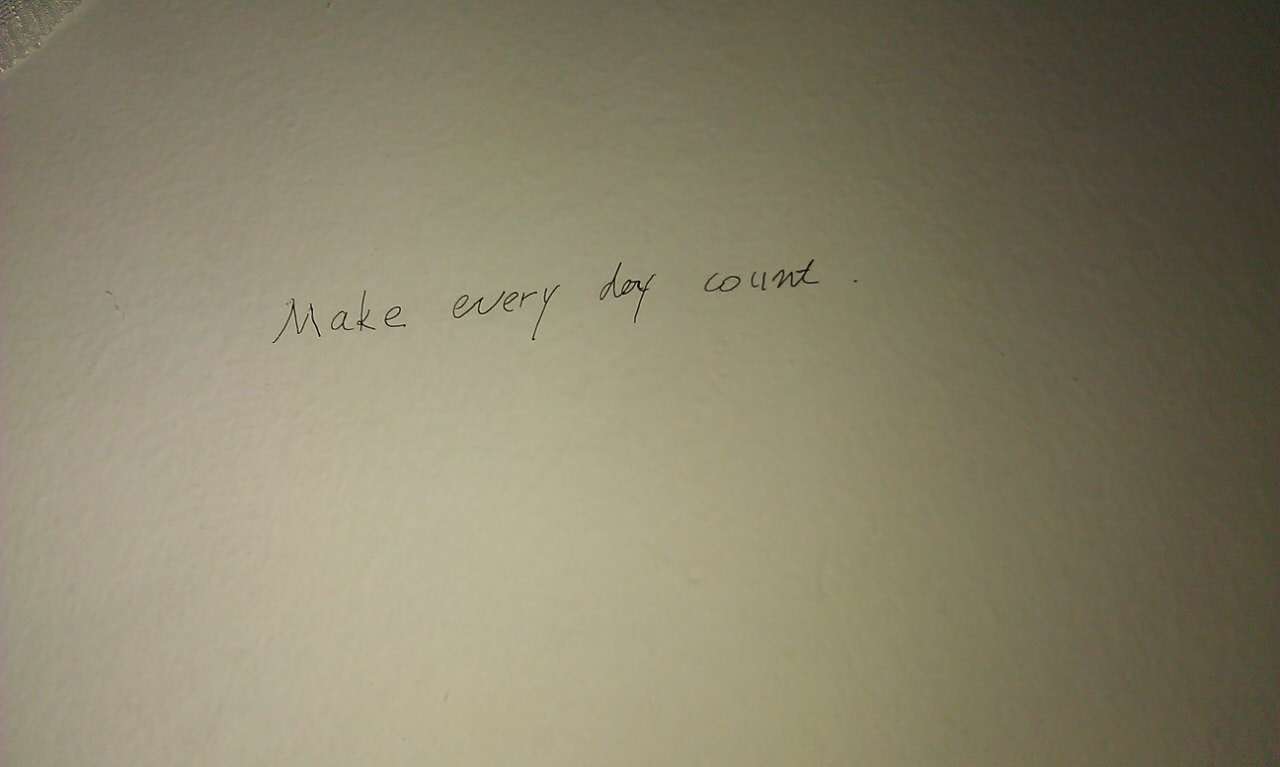 Make every day count.